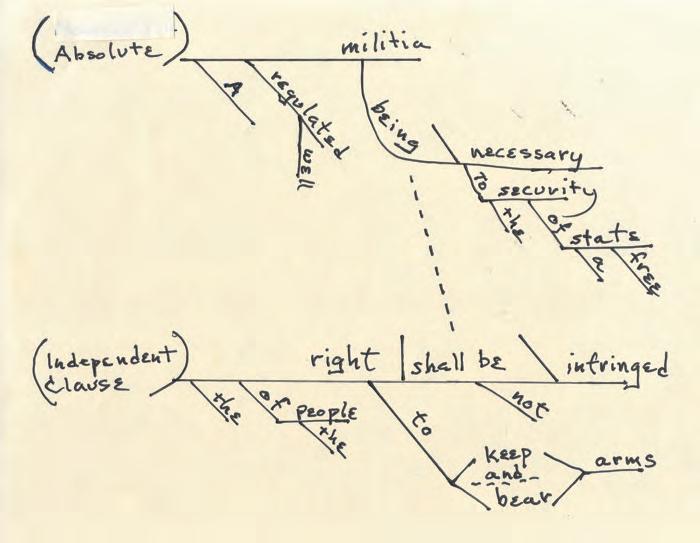 (Absolute)
militia
A
regulated
well
being
necessary
to
security
the
of
state
a
free
(Independent
Clause)
right
shall be
infringed
the
of
people
the
to
not
keep
and
bear
arms